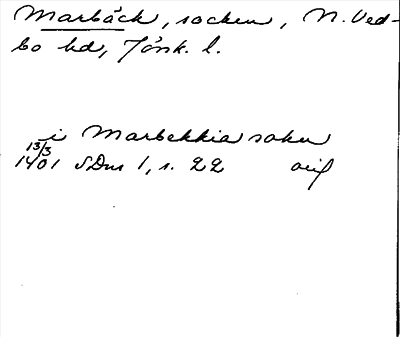 Marbäck, socken, N. Ved-
bo hd, Jönk. l.
i Marbekkia sokn
13/3
1401 SDns 1, s. 22 orig